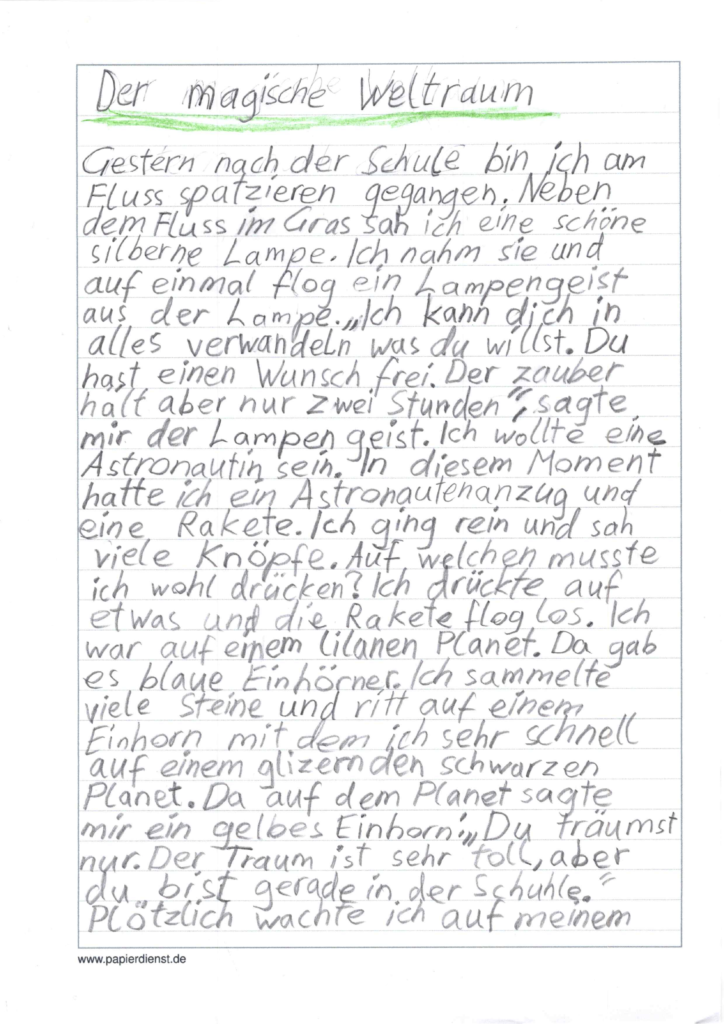 Der magische Weltraum
Gestern nach der Schule bin ich am
Fluss spatzieren gegangen. Neben
dem Fluss im Gras sah ich eine schöne
silberne Lampe. Ich nahm sie und
auf einmal flog ein Lampengeist
aus der Lampe. „Ich kann dich in
alles verwandeln was du willst. Du
hast einen Wunsch frei. Der zauber
hält aber nur zwei Stunden“, sagte
mir der Lampengeist. Ich wollte eine
Astronautin sein. In diesem Moment
hatte ich ein Astronautenanzug und
eine Rakete. Ich ging rein und sah
viele Knöpfe. Auf welchen musste
ich wohl drücken? Ich drückte auf
etwas und die Rakete flog los. Ich
war auf einem lilanen Planet. Da gab
es blaue Einhörner. Ich sammelte
viele Steine und ritt auf einem
Einhorn mit dem ich sehr schnell
auf einem glizernden schwarzen
Planet. Da auf dem Planet sagte
mir ein gelbes Einhorn: „Du träumst
nur. Der Traum ist sehr toll, aber
du bist gerade in der Schuhle.“
Plötzlich wachte ich auf meinem
www.papierdienst.de